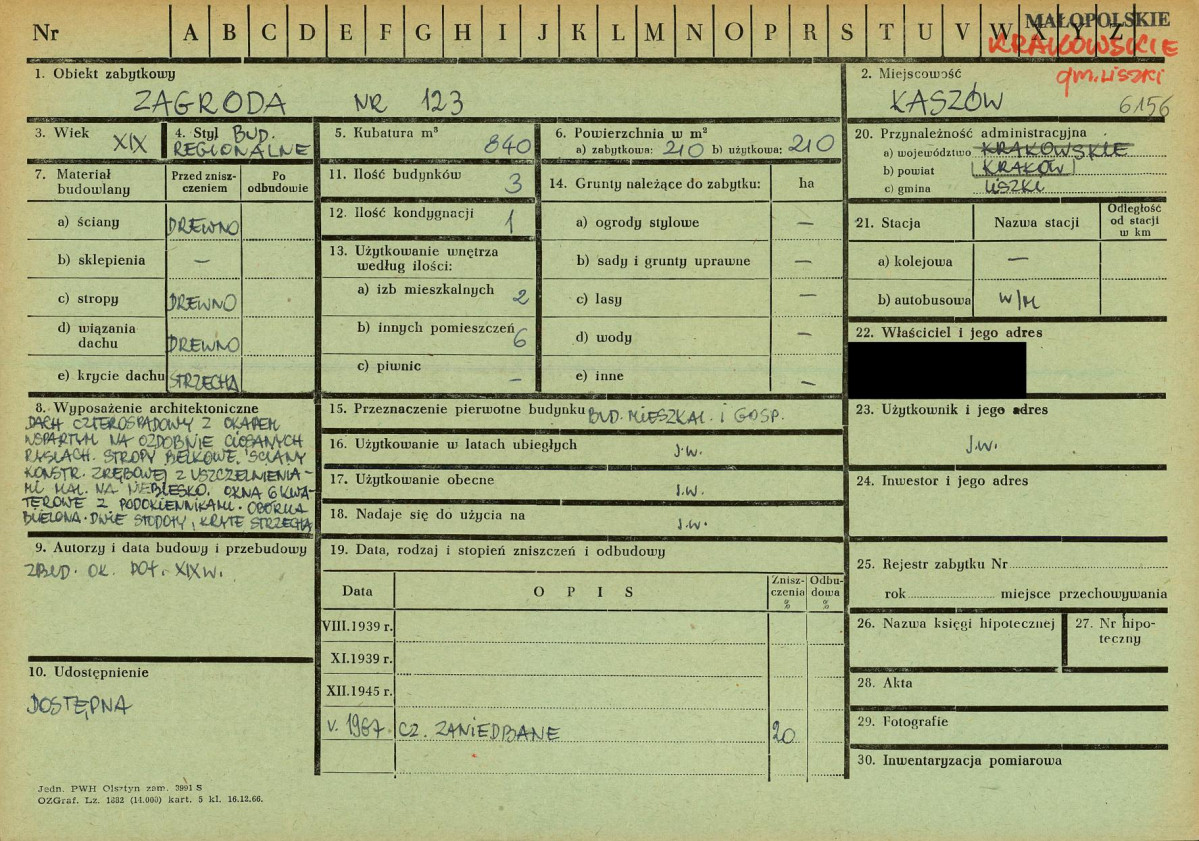 Nr A B C D E F G H I J K L M N O P R S T U V W X Y Z
MAŁOPOLSKIE
KRAKOWSKIE
gm. LISZKI
1. Obiekt zabytkowy
ZAGRODA NR 123
2. Miejscowość
KASZÓW 6156
3. Wiek
XIX
4. Styl BUD.
REGIONALNE
5. Kubatura m³
840
6. Powierzchnia w m²
a) zabytkowa: 210 b) użytkowa: 210
7. Materiał budowlany
Przed zniszczeniem
Po odbudowie
a) ściany DREWNO
b) sklepienia —
c) stropy DREWNO
d) wiązania
dachu DREWNO
e) krycie dachu STRZECHA
8. Wyposażenie architektoniczne
DACH CZTEROSPADOWY Z OKAPEM
WSPARTYM NA OZDOBNIE CIOSANYCH
RYSIACH. STROPY BELKOWE. ŚCIANY
KONSTR. ZRĘBOWEJ Z USZCZELNIENIA-
MI MAL. NA NIEBIESKO. OKNA 6 KWA-
TEROWE Z PODOKIENNIKAMI. OBÓRKA
BIELONA. DWIE STODOŁY, KRYTE STRZECHĄ
9. Autorzy i data budowy i przebudowy
ZBUD. OK. POŁ. XIX W.
10. Udostępnienie
DOSTĘPNA
11. Ilość budynków
3
12. Ilość kondygnacji
1
13. Użytkowanie wnętrza
według ilości:
a) izb mieszkalnych 2
b) innych pomieszczeń 6
c) piwnic —
14. Grunty należące do zabytku: ha
a) ogrody stylowe —
b) sady i grunty uprawne —
c) lasy —
d) wody —
e) inne —
15. Przeznaczenie pierwotne budynku BUD. MIESZKAL. I GOSP.
16. Użytkowanie w latach ubiegłych J.W.
17. Użytkowanie obecne J.W.
18. Nadaje się do użycia na J.W.
19. Data, rodzaj i stopień zniszczeń i odbudowy
Data OPIS Zniszczenia % Odbudowa %
VIII.1939 r.
XI.1939 r.
XII.1945 r.
V. 1967. CZ. ZANIEDBANE 20
20. Przynależność administracyjna
a) województwo KRAKOWSKIE
b) powiat KRAKÓW
c) gmina LISZKI
21. Stacja Nazwa stacji Odległość od stacji w km
a) kolejowa —
b) autobusowa W/M
22. Właściciel i jego adres
23. Użytkownik i jego adres
J.W.
24. Inwestor i jego adres
25. Rejestr zabytku Nr
rok miejsce przechowywania
26. Nazwa księgi hipotecznej
27. Nr hipoteczny
28. Akta
29. Fotografie
30. Inwentaryzacja pomiarowa
Jedn. PWH Olsztyn zam. 3991 S
OZGraf. Lz. 1882 (14.000) kart. 5 kl. 16.12.66.